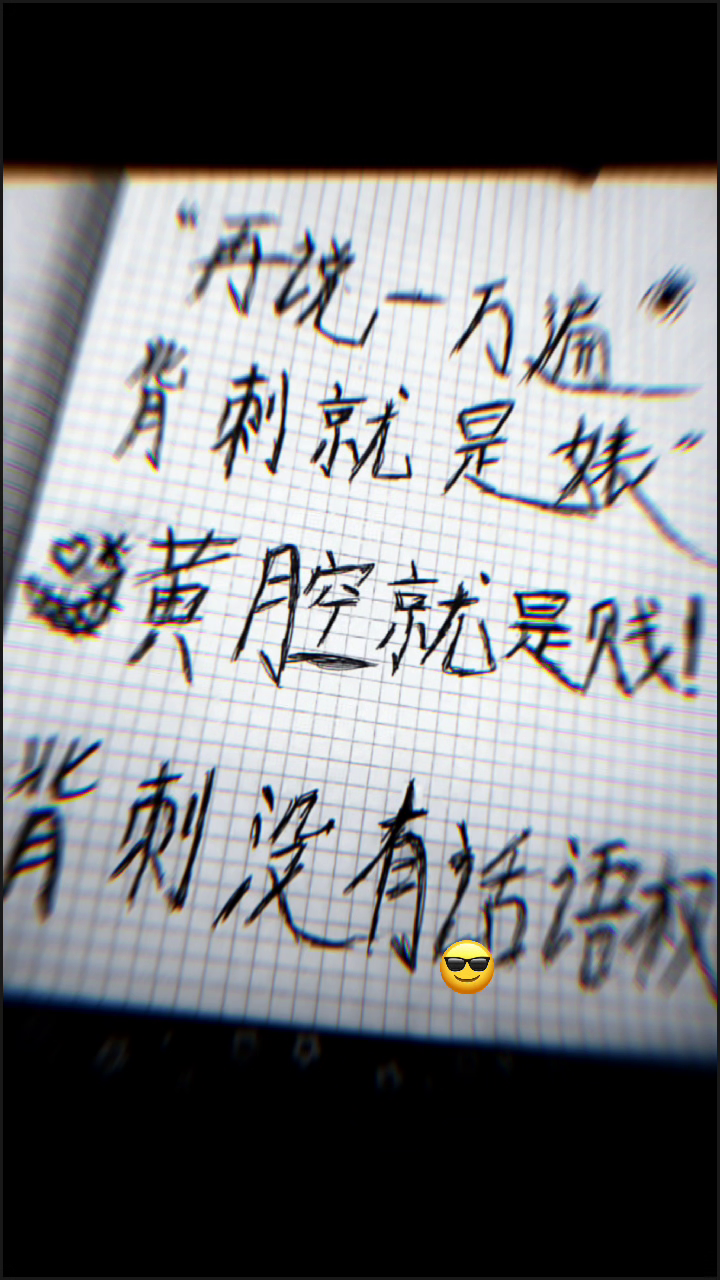 “再说一万遍
背刺就是婊”
黄腔就是贱!
背刺没有话语权